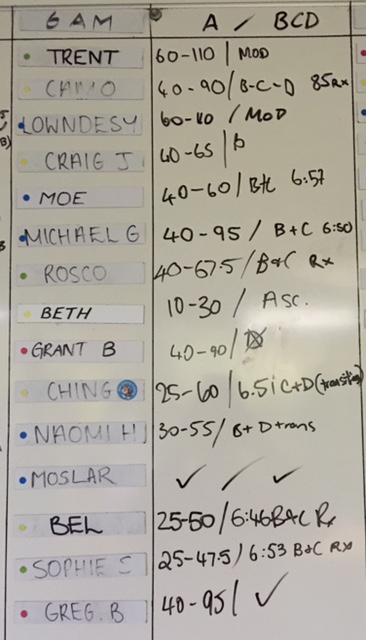 6 AM A / BCD
TRENT 60-110 | MOD
CAMO 40-90/B-C-D 85Rx
LOWNDESY 60-110 / MOD
CRAIG J 40-65 | B
MOE 40-60/B+C 6:57
MICHAEL G 40-95 / B+C 6:50
ROSCO 40-67.5/B&C Rx
BETH 10-30 / Asc.
GRANT B 40-90/
CHING 25-60 / C+D
NAOMI H 30-55/B+D trans
MOSLAR ✓ / ✓
BEL 25-50/6:46 B&C Rx
SOPHIE S 25-47.5/6:53 B&C Rx
GREG. B 40-95/ ✓